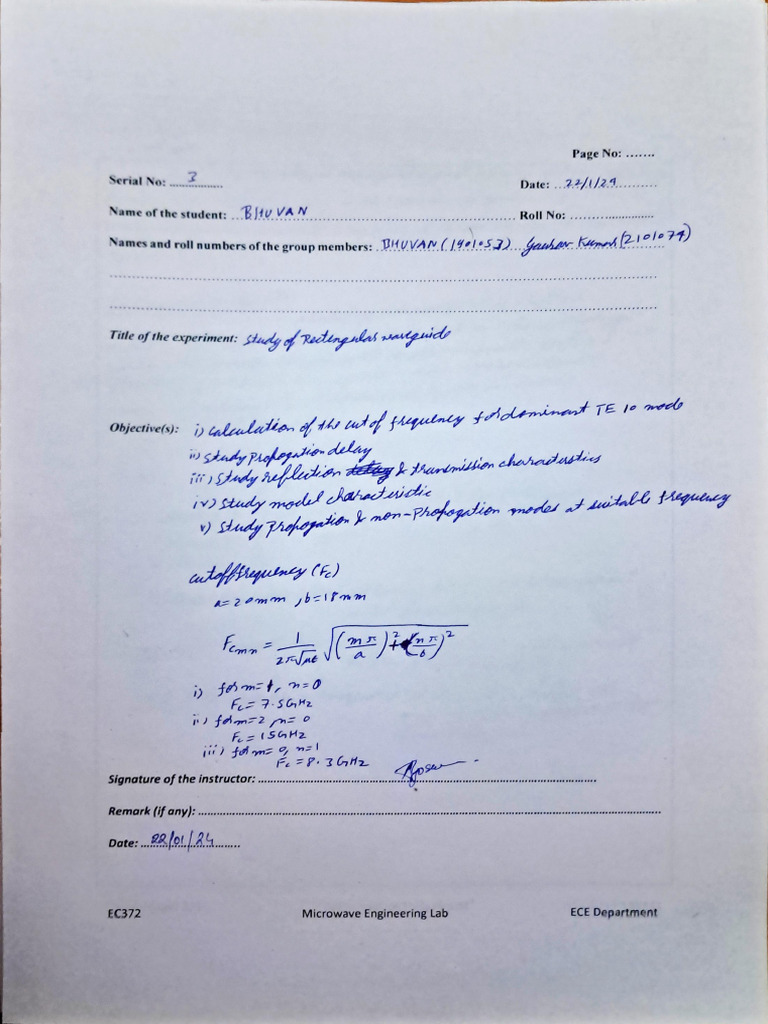 Page No: .......
Serial No: ....3............
Date: ...22/1/24............
Name of the student: ...BHUVAN...................................................... Roll No: ........................
Names and roll numbers of the group members: ..BHUVAN (1401053) Gaurav Kumar (2101074)
Title of the experiment: Study of Rectengular waveguide
Objective(s): i) calculation of the cut of frequency for dominant TE 10 mode
ii) Study Propogation delay
iii) Study reflection & transmission characteristics
iv) Study model characteristic
v) Study Propogation & non-Propogation modes at suitable frequency
cutoff frequency (Fc)
a=20mm , b=18mm
Fcmn = 1/2π√με √(mπ/a)² + (nπ/b)²
i) for m=1, n=0
Fc = 7.5GHz
ii) for m=2, n=0
Fc = 15GHz
iii) for m=0, n=1
Fc = 8.3GHz
Signature of the instructor: ........................................................................
Remark (if any): ........................................................................
Date: ...22/01/24.........
EC372 Microwave Engineering Lab ECE Department